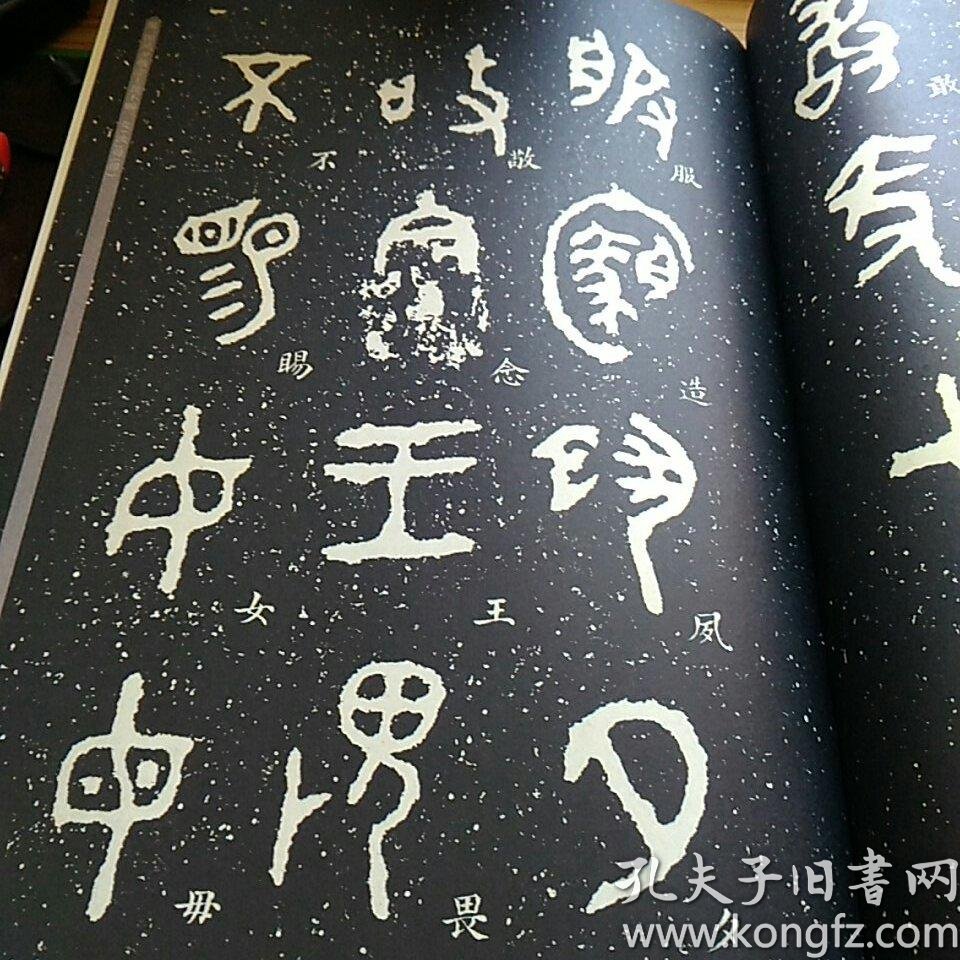 敢
服造夙夕
敬念王畏
不賜女毋
孔夫子旧書网
www.kongfz.com